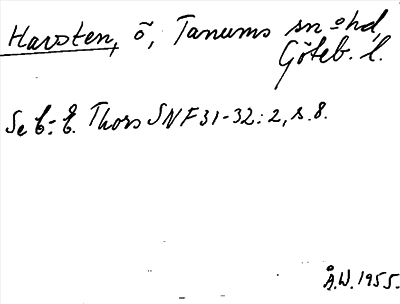 Harsten, ö, Tanums sn o hd,
Göteb. l.
Se C.-E. Thors SNF 31-32:2, s. 8.
Å.W. 1955.